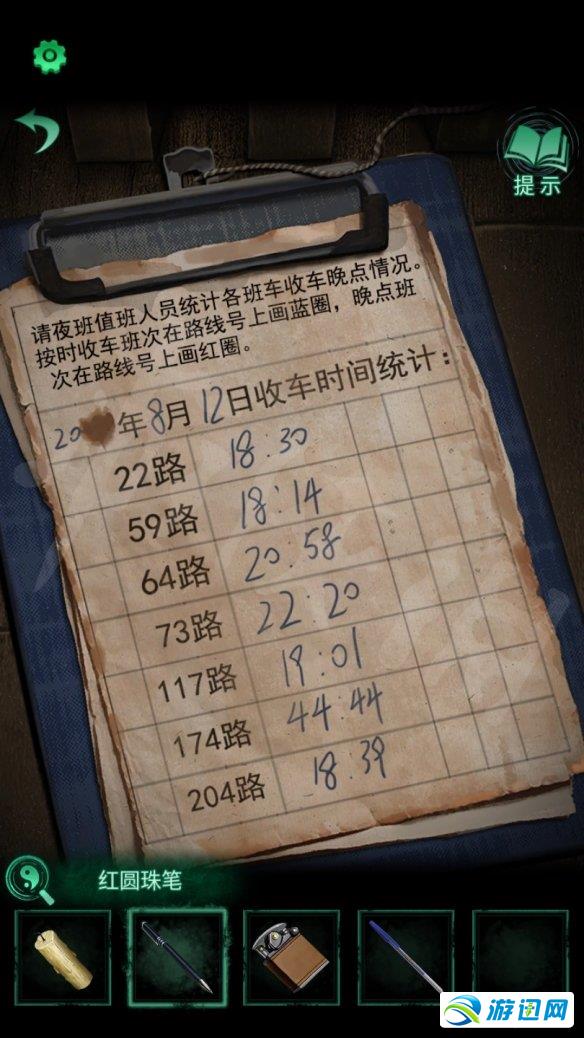 提示
请夜班值班人员统计各班车收车晚点情况。
按时收车班次在路线号上画蓝圈，晚点班
次在路线号上画红圈。
20 年8月12日收车时间统计：
22路 18:30
59路 18:14
64路 20:58
73路 22:20
117路 19:01
174路 44:44
204路 18:39
红圆珠笔
游迅网